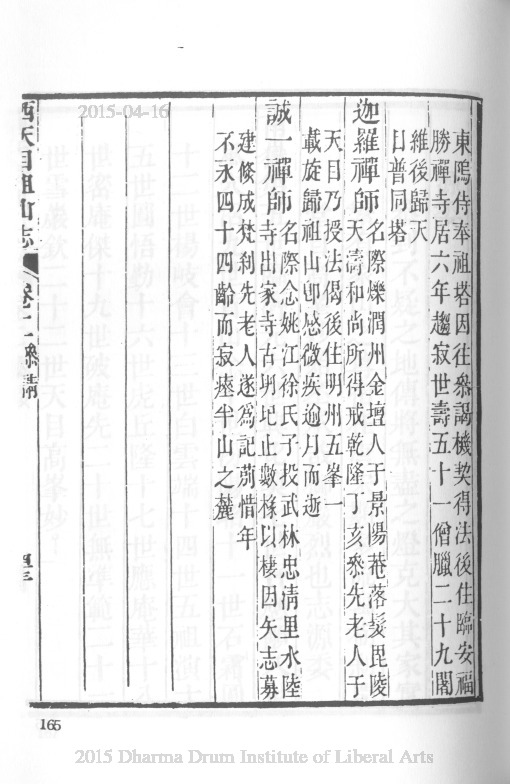 2015-04-16
東隖侍奉祖塔因往叅謁機契得法後住臨安福
勝禪寺居六年趨寂世壽五十一僧臘二十九闍
維後歸天
目普同塔
迦羅禪師名際爍潤州金壇人于景陽菴落髮毘陵
天濤和尚所得戒乾隆丁亥叅先老人于
天目乃授法偈後住明州五峯一
載旋歸祖山卽感微疾逾月而逝
誠一禪師名際念姚江徐氏子投武林忠淸里水陸
寺出家寺古圯止數椽以棲因矢志募
建倐成梵刹先老人遂爲記剏惜年
不永四十四齡而寂瘞半山之麓
西天目祖山志
卷二
叅請
165
2015 Dharma Drum Institute of Liberal Arts